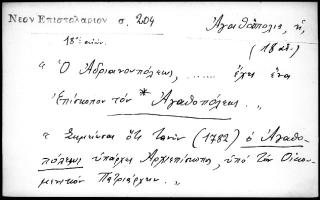 Νεον Επιστολαριον σ. 204
Ἀγαθόπολις, ἡ,
18ος αἰών.
(18 αἰ.)
"Ὁ Ἀδριανουπόλεως, ........ ἔχει ἕνα
Ἐπίσκοπον τὸν * Ἀγαθοπόλεως."
"Σημείωσαι ὅτι Τανῦν (1782) ὁ Ἀγαθο-
πόλεως ὑπάρχει Ἀρχιεπίσκοπος, ὑπὸ τὸν Οἰκου-
μενικὸν Πατριάρχην."